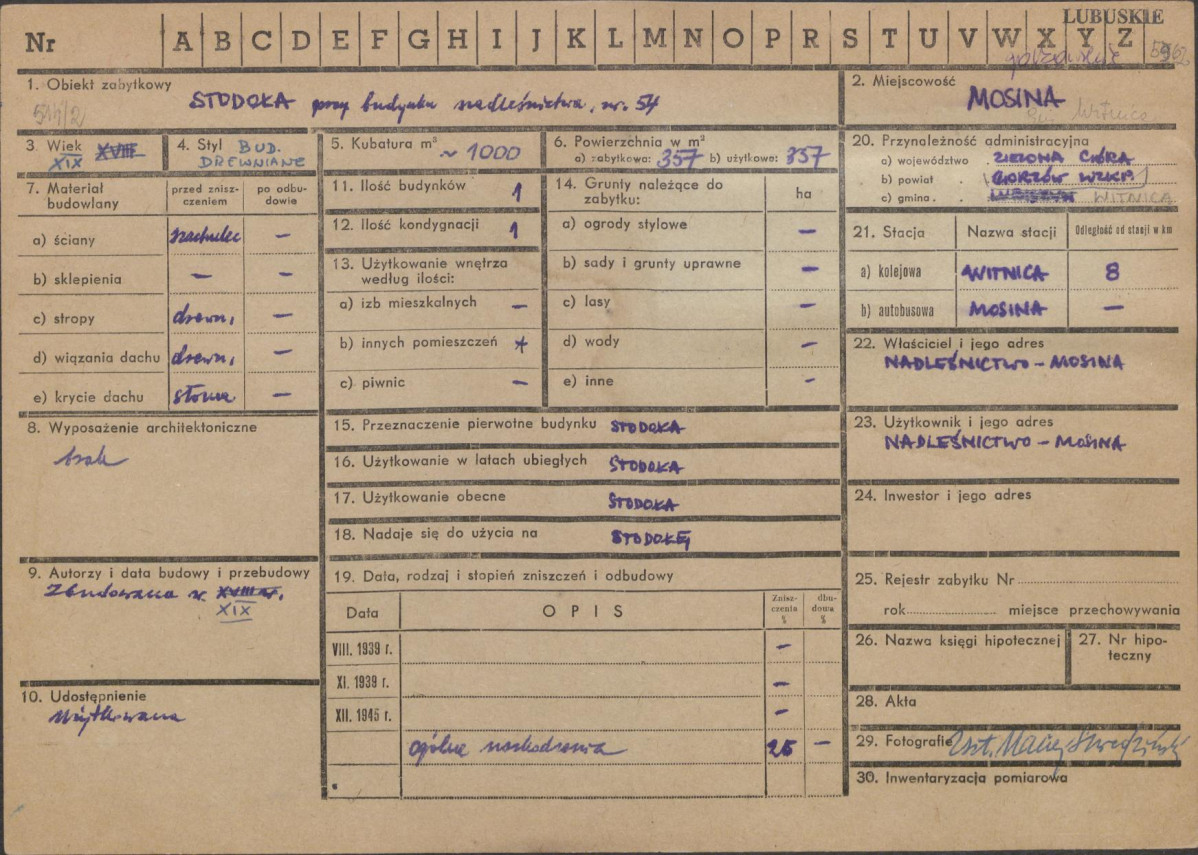 LUBUSKIE
Nr A B C D E F G H I J K L M N O P R S T U V W X Y Z
1. Obiekt zabytkowy
STODOŁA przy budynku nadleśnictwa, nr. 54
2. Miejscowość
MOSINA
gm. Witnica
3. Wiek XVIII
XIX
4. Styl BUD.
DREWNIANE
5. Kubatura m³
~ 1000
6. Powierzchnia w m²
a) zabytkowa: 357 b) użytkowe: 357
7. Materiał budowlany
przed znisz-
czeniem
po odbu-
dowie
a) ściany szachulec —
b) sklepienia — —
c) stropy drewn. —
d) wiązania dachu drewn. —
e) krycie dachu słoma —
8. Wyposażenie architektoniczne
brak
9. Autorzy i data budowy i przebudowy
Zbudowana w XVIII w.
XIX
10. Udostępnienie
Użytkowana
11. Ilość budynków 1
12. Ilość kondygnacji 1
13. Użytkowanie wnętrza
według ilości:
a) izb mieszkalnych —
b) innych pomieszczeń
c) piwnic —
14. Grunty należące do
zabytku:
ha
a) ogrody stylowe —
b) sady i grunty uprawne —
c) lasy —
d) wody —
e) inne -
15. Przeznaczenie pierwotne budynku STODOŁA
16. Użytkowanie w latach ubiegłych STODOŁA
17. Użytkowanie obecne STODOŁA
18. Nadaje się do użycia na STODOŁĘ
19. Data, rodzaj i stopień zniszczeń i odbudowy
Data OPIS
Znisz-
czenia
%
dbu-
dowa
%
VIII. 1939 r. —
XI. 1939 r. —
XII. 1945 r. —
ogólne uszkodzenia 25 —
20. Przynależność administracyjna
a) województwo . ZIELONA GÓRA
b) powiat . GORZÓW WLKP.
c) gmina . LUBISZYN WITNICA
21. Stacja Nazwa stacji Odległość od stacji w km
a) kolejowa WITNICA 8
b) autobusowa MOSINA —
22. Właściciel i jego adres
NADLEŚNICTWO - MOSINA
23. Użytkownik i jego adres
NADLEŚNICTWO - MOSINA
24. Inwestor i jego adres
25. Rejestr zabytku Nr
rok miejsce przechowywania
26. Nazwa księgi hipotecznej
27. Nr hipo-
teczny
28. Akta
29. Fotografie
30. Inwentaryzacja pomiarowa